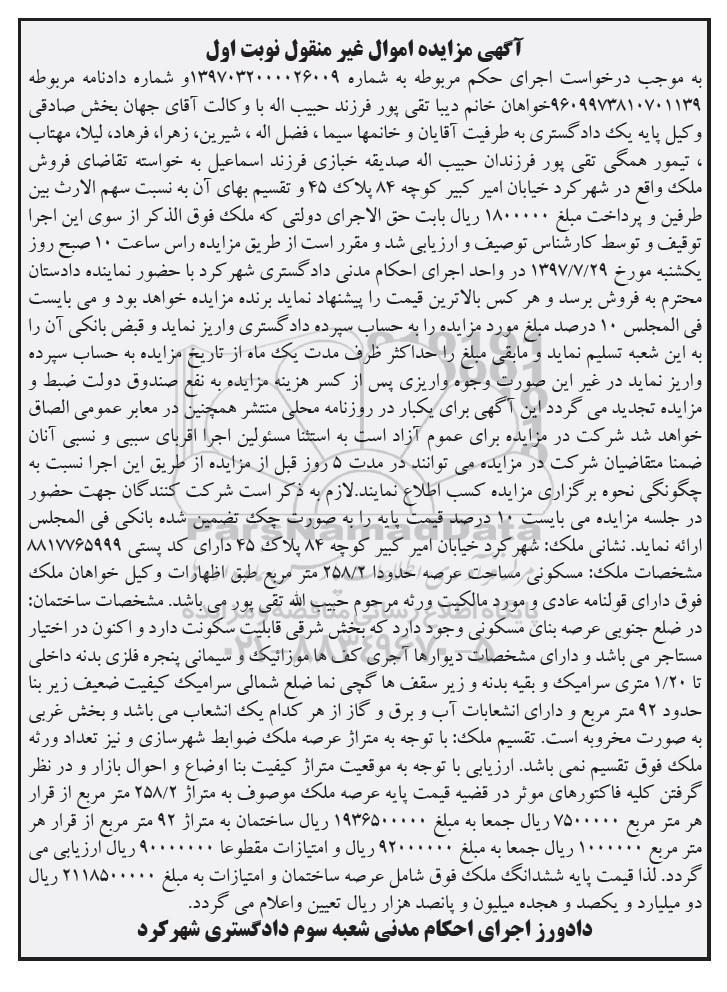 آگهی مزایده اموال غیر منقول نوبت اول
به موجب درخواست اجرای حکم مربوطه به شماره ۱۳۹۷۰۳۲۰۰۰۰۲۶۰۰۹و شماره دادنامه مربوطه
۹۶۰۹۹۷۳۸۱۰۷۰۱۱۳۹خواهان خانم دیبا تقی پور فرزند حبیب اله با وکالت آقای جهان بخش صادقی
وکیل پایه یک دادگستری به طرفیت آقایان و خانمها سیما ، فضل اله ، شیرین، زهرا، فرهاد، لیلا، مهتاب
، تیمور همگی تقی پور فرزندان حبیب اله صدیقه خبازی فرزند اسماعیل به خواسته تقاضای فروش
ملک واقع در شهرکرد خیابان امیر کبیر کوچه ۸۴ پلاک ۴۵ و تقسیم بهای آن به نسبت سهم الارث بین
طرفین و پرداخت مبلغ ۱۸۰۰۰۰۰ ریال بابت حق الاجرای دولتی که ملک فوق الذکر از سوی این اجرا
توقیف و توسط کارشناس توصیف و ارزیابی شد و مقرر است از طریق مزایده راس ساعت ۱۰ صبح روز
یکشنبه مورخ ۱۳۹۷/۷/۲۹ در واحد اجرای احکام مدنی دادگستری شهرکرد با حضور نماینده دادستان
محترم به فروش برسد و هر کس بالاترین قیمت را پیشنهاد نماید برنده مزایده خواهد بود و می بایست
فی المجلس ۱۰ درصد مبلغ مورد مزایده را به حساب سپرده دادگستری واریز نماید و قبض بانکی آن را
به این شعبه تسلیم نماید و مابقی مبلغ را حداکثر ظرف مدت یک ماه از تاریخ مزایده به حساب سپرده
واریز نماید در غیر این صورت وجوه واریزی پس از کسر هزینه مزایده به نفع صندوق دولت ضبط و
مزایده تجدید می گردد این آگهی برای یکبار در روزنامه محلی منتشر همچنین در معابر عمومی الصاق
خواهد شد شرکت در مزایده برای عموم آزاد است به استثنا مسئولین اجرا اقربای سببی و نسبی آنان
ضمنا متقاضیان شرکت در مزایده می توانند در مدت ۵ روز قبل از مزایده از طریق این اجرا نسبت به
چگونگی نحوه برگزاری مزایده کسب اطلاع نمایند.لازم به ذکر است شرکت کنندگان جهت حضور
در جلسه مزایده می بایست ۱۰ درصد قیمت پایه را به صورت چک تضمین شده بانکی فی المجلس
ارائه نماید. نشانی ملک: شهرکرد خیابان امیر کبیر کوچه ۸۴ پلاک ۴۵ دارای کد پستی ۸۸۱۷۷۶۵۹۹۹
مشخصات ملک: مسکونی مساحت عرصه حدودا ۲۵۸/۲ متر مربع طبق اظهارات وکیل خواهان ملک
فوق دارای قولنامه عادی و مورد مالکیت ورثه مرحوم حبیب الله تقی پور می باشد. مشخصات ساختمان:
در ضلع جنوبی عرصه بنای مسکونی وجود دارد که بخش شرقی قابلیت سکونت دارد و اکنون در اختیار
مستاجر می باشد و دارای مشخصات دیوارها آجری کف ها موزائیک و سیمانی پنجره فلزی بدنه داخلی
تا ۱/۲۰ متری سرامیک و بقیه بدنه و زیر سقف ها گچی نما ضلع شمالی سرامیک کیفیت ضعیف زیر بنا
حدود ۹۲ متر مربع و دارای انشعابات آب و برق و گاز از هر کدام یک انشعاب می باشد و بخش غربی
به صورت مخروبه است. تقسیم ملک: با توجه به متراژ عرصه ملک ضوابط شهرسازی و نیز تعداد ورثه
ملک فوق تقسیم نمی باشد. ارزیابی با توجه به موقعیت متراژ کیفیت بنا اوضاع و احوال بازار و در نظر
گرفتن کلیه فاکتورهای موثر در قضیه قیمت پایه عرصه ملک موصوف به متراژ ۲۵۸/۲ متر مربع از قرار
هر متر مربع ۷۵۰۰۰۰۰ ریال جمعا به مبلغ ۱۹۳۶۵۰۰۰۰۰ ریال ساختمان به متراژ ۹۲ متر مربع از قرار هر
متر مربع ۱۰۰۰۰۰۰ ریال جمعا به مبلغ ۹۲۰۰۰۰۰۰ ریال و امتیازات مقطوعا ۹۰۰۰۰۰۰۰ ریال ارزیابی می
گردد. لذا قیمت پایه ششدانگ ملک فوق شامل عرصه ساختمان و امتیازات به مبلغ ۲۱۱۸۵۰۰۰۰۰ ریال
دو میلیارد و یکصد و هجده میلیون و پانصد هزار ریال تعیین واعلام می گردد.
دادورز اجرای احکام مدنی شعبه سوم دادگستری شهرکرد
ParsNamadData
پایگاه اطلاع رسانی مناقصه و مزایده
۰۲۱-۸۸۳۴۹۶۷۰-۵